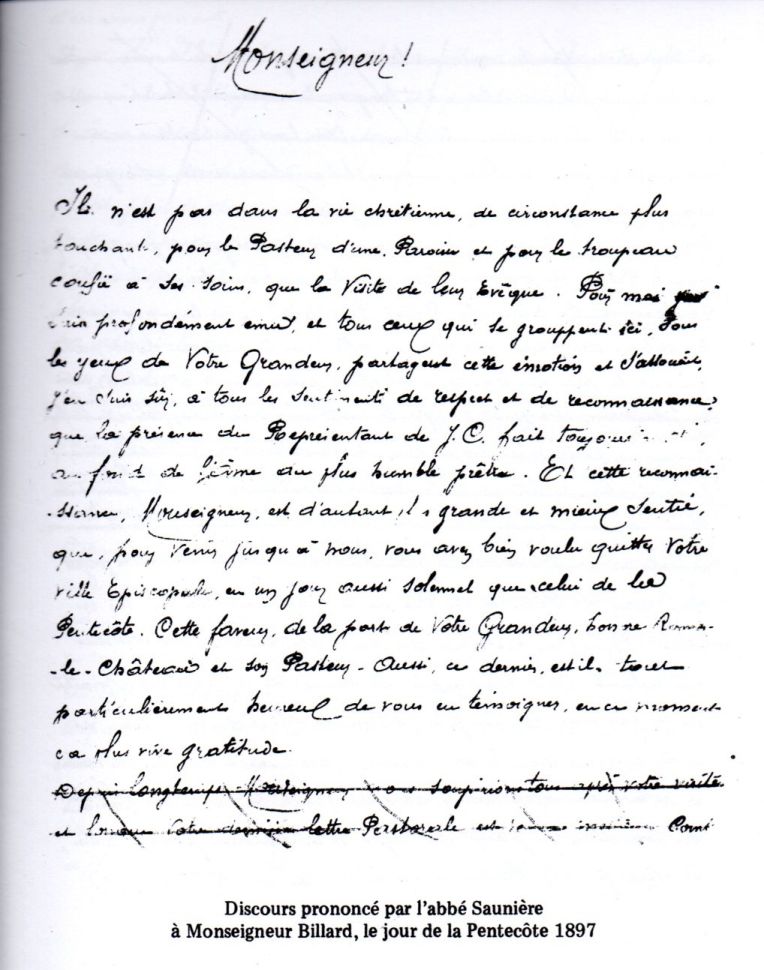 Monseigneur!
Il n'est pas dans la vie chrétienne, de circonstance plus
touchante, pour le Pasteur d'une Paroisse et pour le troupeau
confié à ses soins, que la Visite de leur Evêque. Pour moi
suis profondément emu, et tous ceux qui se grouppent ici, sous
les yeux de Votre Grandeur, partagent cette émotion et s'associent,
j'en suis sûr, à tous les sentiments de respect et de reconnaissance,
que la présence du Représentant de J.C. fait toujours
au fond de l'âme du plus humble prêtre. Et cette reconnai-
-ssance, Monseigneur, est d'autant plus grande et mieux sentie,
que, pour venir jusqu'à nous, vous avez bien voulu quitter Votre
ville Episcopale, en un jour aussi solennel que celui de la
Pentecôte. Cette faveur, de la part de Votre Grandeur, honore Rennes-
-le-Château et son Pasteur. Aussi, ce dernier, est-il tout
particulièrement heureux de vous en témoigner, en ce moment
sa plus vive gratitude.
Depuis longtemps Monseigneur nous soupirions tous après votre visite
et lorsque Votre dernière lettre Pastorale est
Discours prononcé par l'abbé Saunière
à Monseigneur Billard, le jour de la Pentecôte 1897